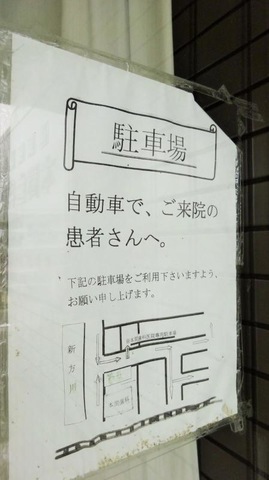 駐車場
自動車で、ご来院の
患者さんへ。
下記の駐車場をご利用下さいますよう、
お願い申し上げます。
新方川